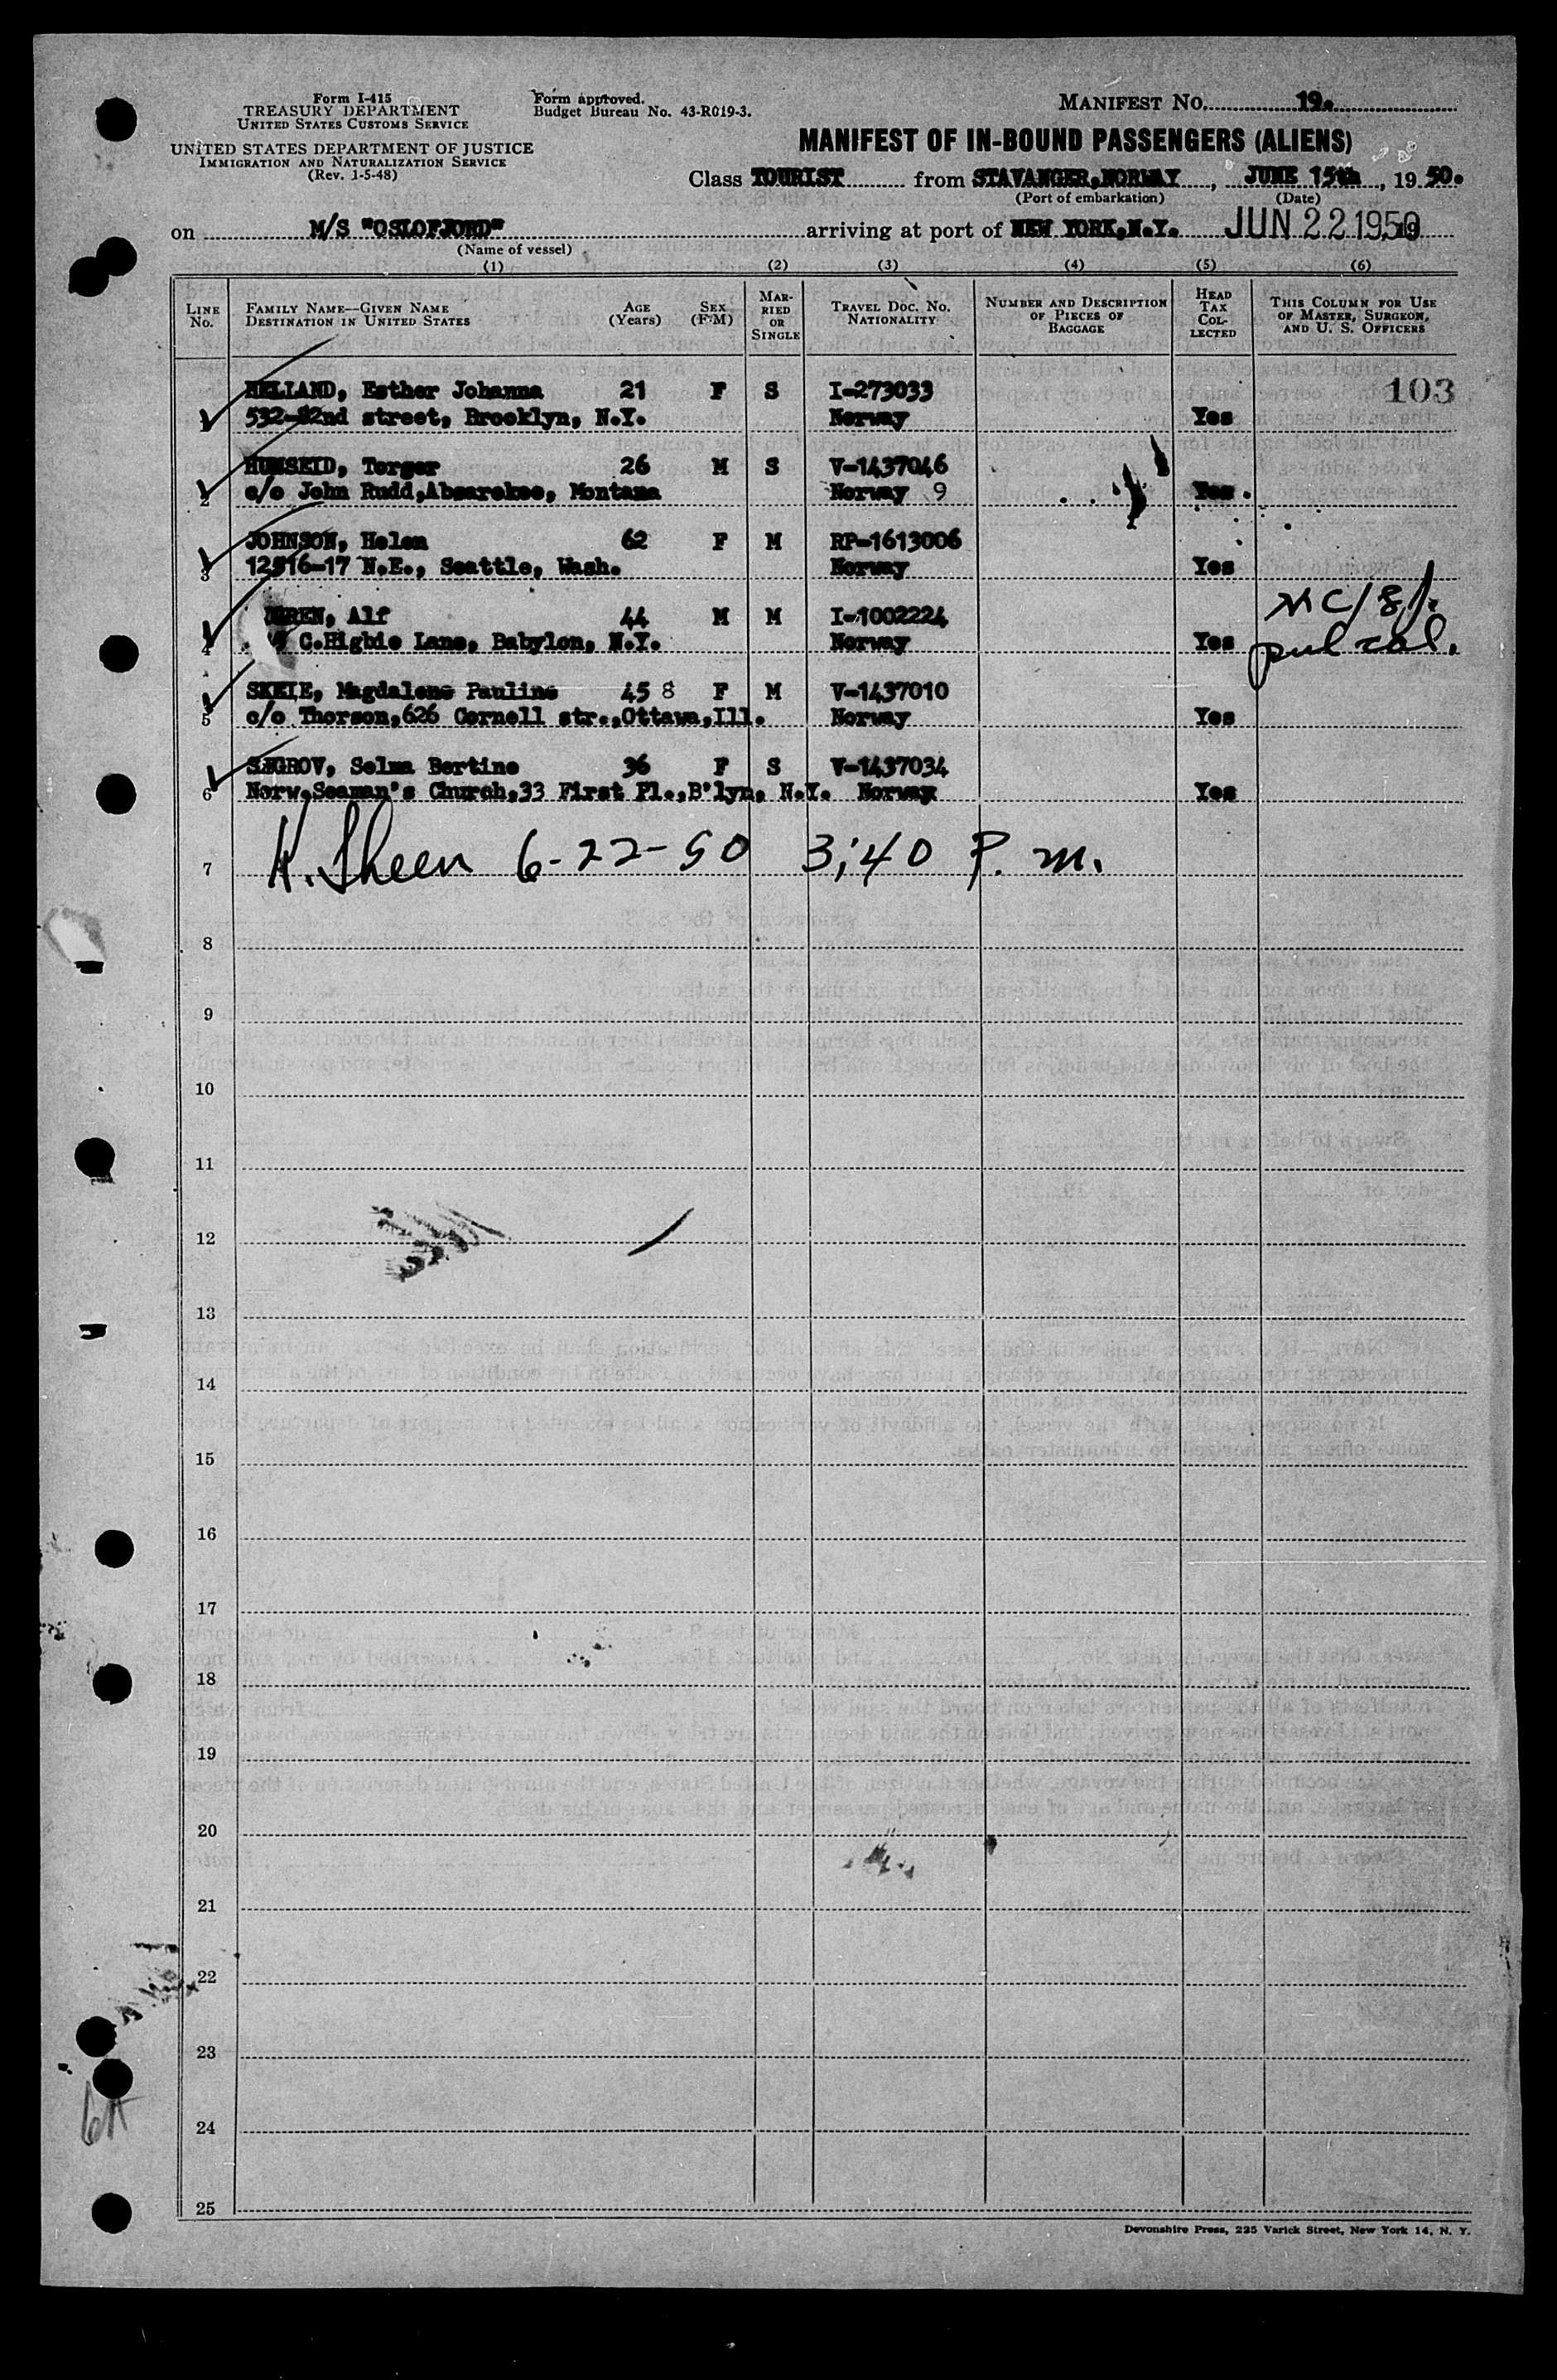 Form I-415
TREASURY DEPARTMENT
UNITED STATES CUSTOMS SERVICE
UNITED STATES DEPARTMENT OF JUSTICE
IMMIGRATION AND NATURALIZATION SERVICE
(Rev. 1-5-48)
Form approved.
Budget Bureau No. 43-R019-3.
MANIFEST NO. 19.
MANIFEST OF IN-BOUND PASSENGERS (ALIENS)
Class TOURIST from STAVANGER, NORWAY, JUNE 15th, 1950.
(Port of embarkation) (Date)
on M/S "OSLOFJORD" arriving at port of NEW YORK, N.Y. JUN 22 1950
(Name of vessel)
(1) (2) (3) (4) (5) (6)
LINE No. FAMILY NAME—GIVEN NAME DESTINATION IN UNITED STATES AGE (Years) SEX (F-M) MARRIED OR SINGLE TRAVEL DOC. NO. NATIONALITY NUMBER AND DESCRIPTION OF PIECES OF BAGGAGE HEAD TAX COLLECTED THIS COLUMN FOR USE OF MASTER, SURGEON, AND U. S. OFFICERS
HELLAND, Esther Johanna 21 F S I-273033 103
532-82nd street, Brooklyn, N.Y. Norway Yes
HUMSEID, Torger 26 M S V-1437046
2 c/o John Rudd, Absarokee, Montana Norway 9 Yes
JOHNSON, Helen 62 F M RP-1613006
3 12516-17 N.E., Seattle, Wash. Norway Yes
Alf 44 M M I-1002224
4 C. Higbie Lane, Babylon, N.Y. Norway Yes
SKEIE, Magdalene Pauline 45 8 F M V-1437010
5 c/o Thorson, 626 Cornell str., Ottawa, Ill. Norway Yes
Selma Bertine 36 F S V-1437034
6 Norw. Seaman's Church, 33 First Pl., B'lyn, N.Y. Norway Yes
7 H. Sheen 6-22-50 3:40 P. m.
8
9
10
11
12
13
14
15
16
17
18
19
20
21
22
23
24
25
Devonshire Press, 225 Varick Street, New York 14, N. Y.